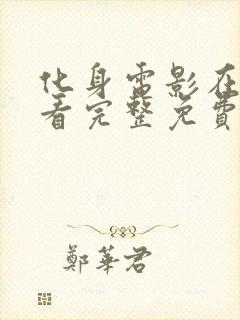 化身電影在
看完整免費
鄭華君